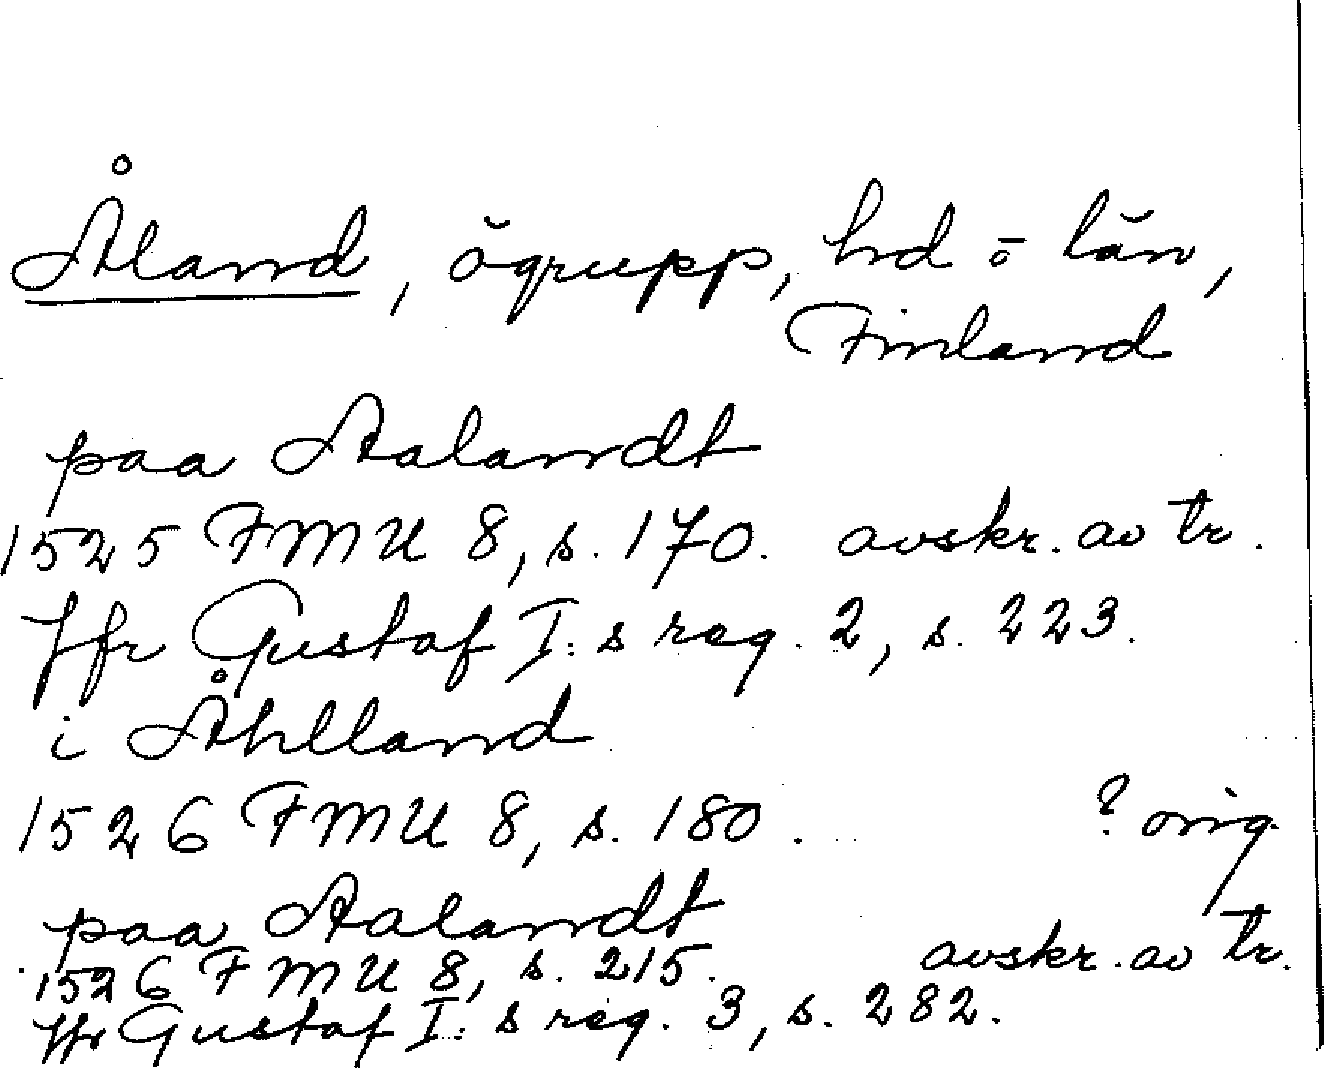 Åland, ögrupp, hd o län,
Finland
paa Aalandt
1525 FMU 8, s. 170. avskr. av tr.
Jfr Gustaf I:s reg. 2, s. 223.
i Åhlland
1526 FMU 8, s. 180. ? orig.
paa Aalandt
1526 FMU 8, s. 215. avskr. av tr.
Jfr Gustaf I:s reg. 3, s. 282.